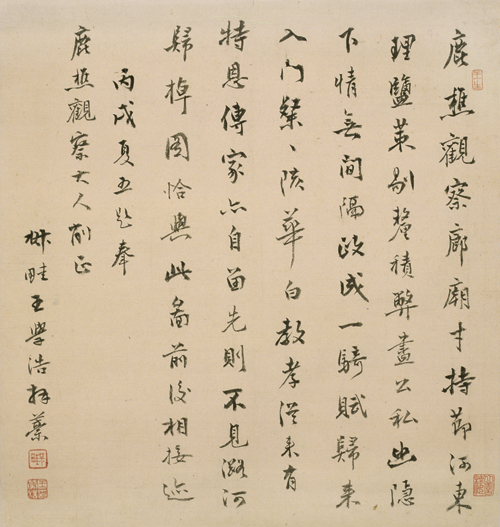 鹿樵觀察廊廟才持節河東
理鹽策剔釐積弊盡公私幽隱
下情無間隔政成一騎賦歸來
入門粲〻陔華白教孝從來有
特恩傳家亦自留先則不見潞河
歸棹圖恰與此圖前後相接迹
丙戌夏五題奉
鹿樵觀察大人削正
椒畦王學浩拜稾